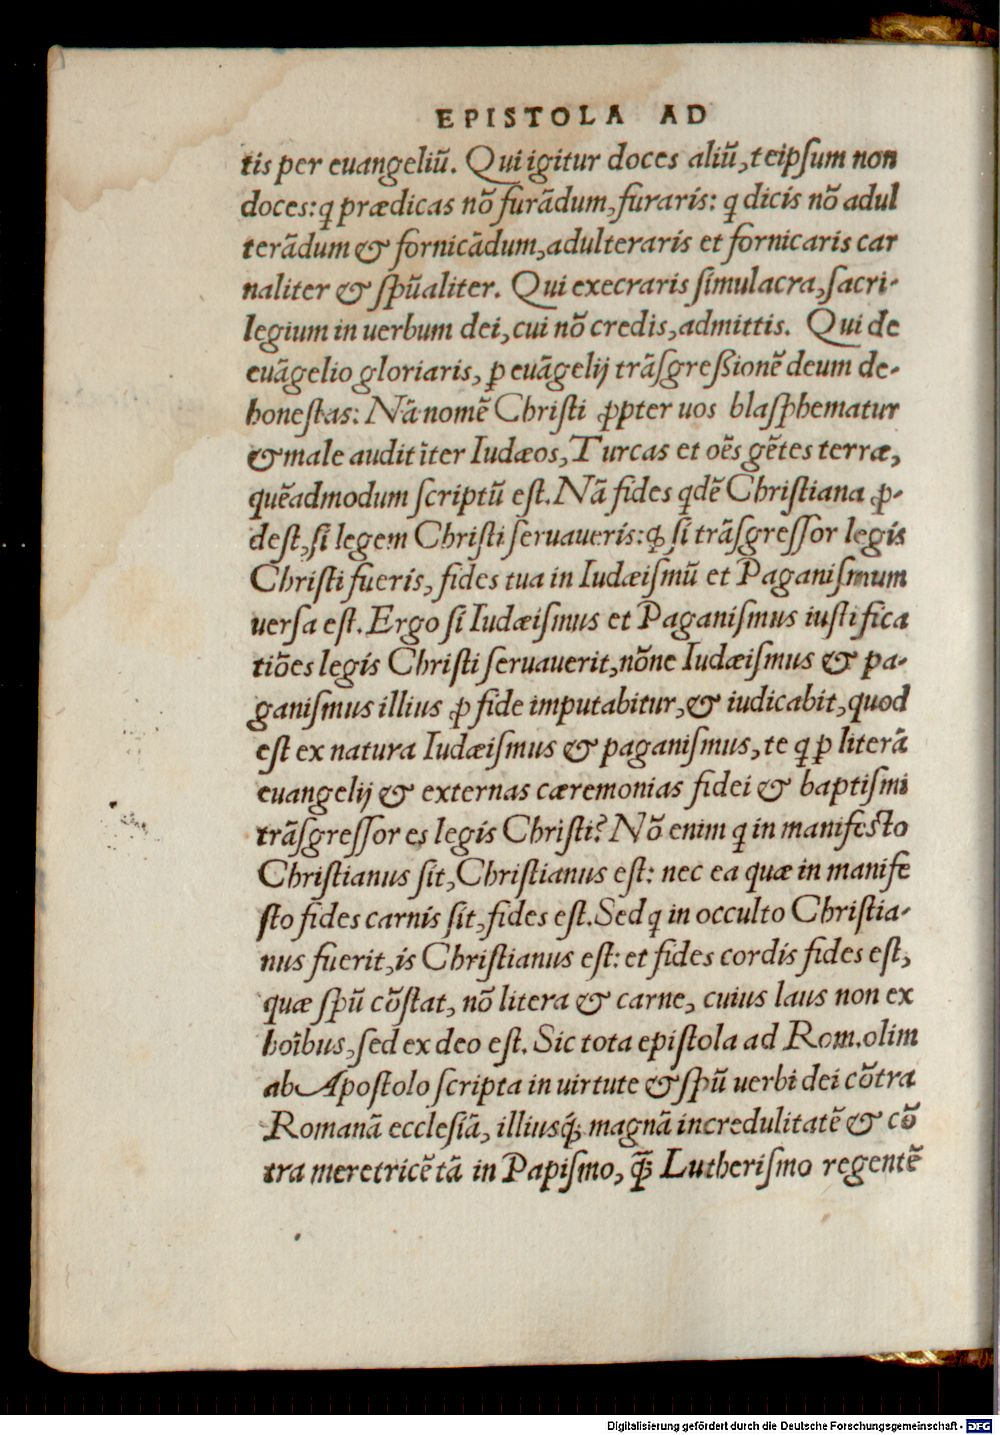 EPISTOLA AD
tis per euangeliũ. Qui igitur doces aliũ, teipſum non
doces: q̃ prædicas nõ furãdum, furaris: q̃ dicis nõ adul
terãdum & fornicãdum, adulteraris et fornicaris car
naliter & ſpũaliter. Qui execraris ſimulacra, ſacri-
legium in uerbum dei, cui nõ credis, admittis. Qui de
euãgelio gloriaris, ꝑ euãgelij trãſgreßionẽ deum de-
honeſtas: Nã nomẽ Chriſti ꝓpter uos blaſphematur
& male audit ĩter Iudæos, Turcas et oẽs gẽtes terræ,
quẽadmodum ſcriptũ eſt. Nã fides qdẽ Chriſtiana ꝓ-
deſt, ſi legem Chriſti ſeruaueris: ꝙ ſi trãſgreſſor legis
Chriſti fueris, fides tua in Iudæiſmũ et Paganiſmum
uerſa eſt. Ergo ſi Iudæiſmus et Paganiſmus iuſtifica
tiões legis Chriſti ſeruauerit, nõne Iudæiſmus & pa-
ganiſmus illius ꝓ fide imputabitur, & iudicabit, quod
eſt ex natura Iudæiſmus & paganiſmus, te q̃ ꝑ literã
euangelij & externas cæremonias fidei & baptiſmi
trãſgreſſor es legis Chriſti? Nõ enim q̃ in manifeſto
Chriſtianus ſit, Chriſtianus eſt: nec ea quæ in manife
ſto fides carnis ſit, fides eſt. Sed q̃ in occulto Chriſtia-
nus fuerit, is Chriſtianus eſt: et fides cordis fides eſt,
quæ ſpũ cõſtat, nõ litera & carne, cuius laus non ex
hoĩbus, ſed ex deo eſt. Sic tota epiſtola ad Rom. olim
ab Apoſtolo ſcripta in uirtute & ſpũ uerbi dei cõtra
Romanã eccleſiã, illiusq; magnã incredulitatẽ & cõ
tra meretricẽ tã in Papiſmo, q̃ꝫ Lutheriſmo regentẽ
Digitalisierung gefördert durch die Deutsche Forschungsgemeinschaft - DFG